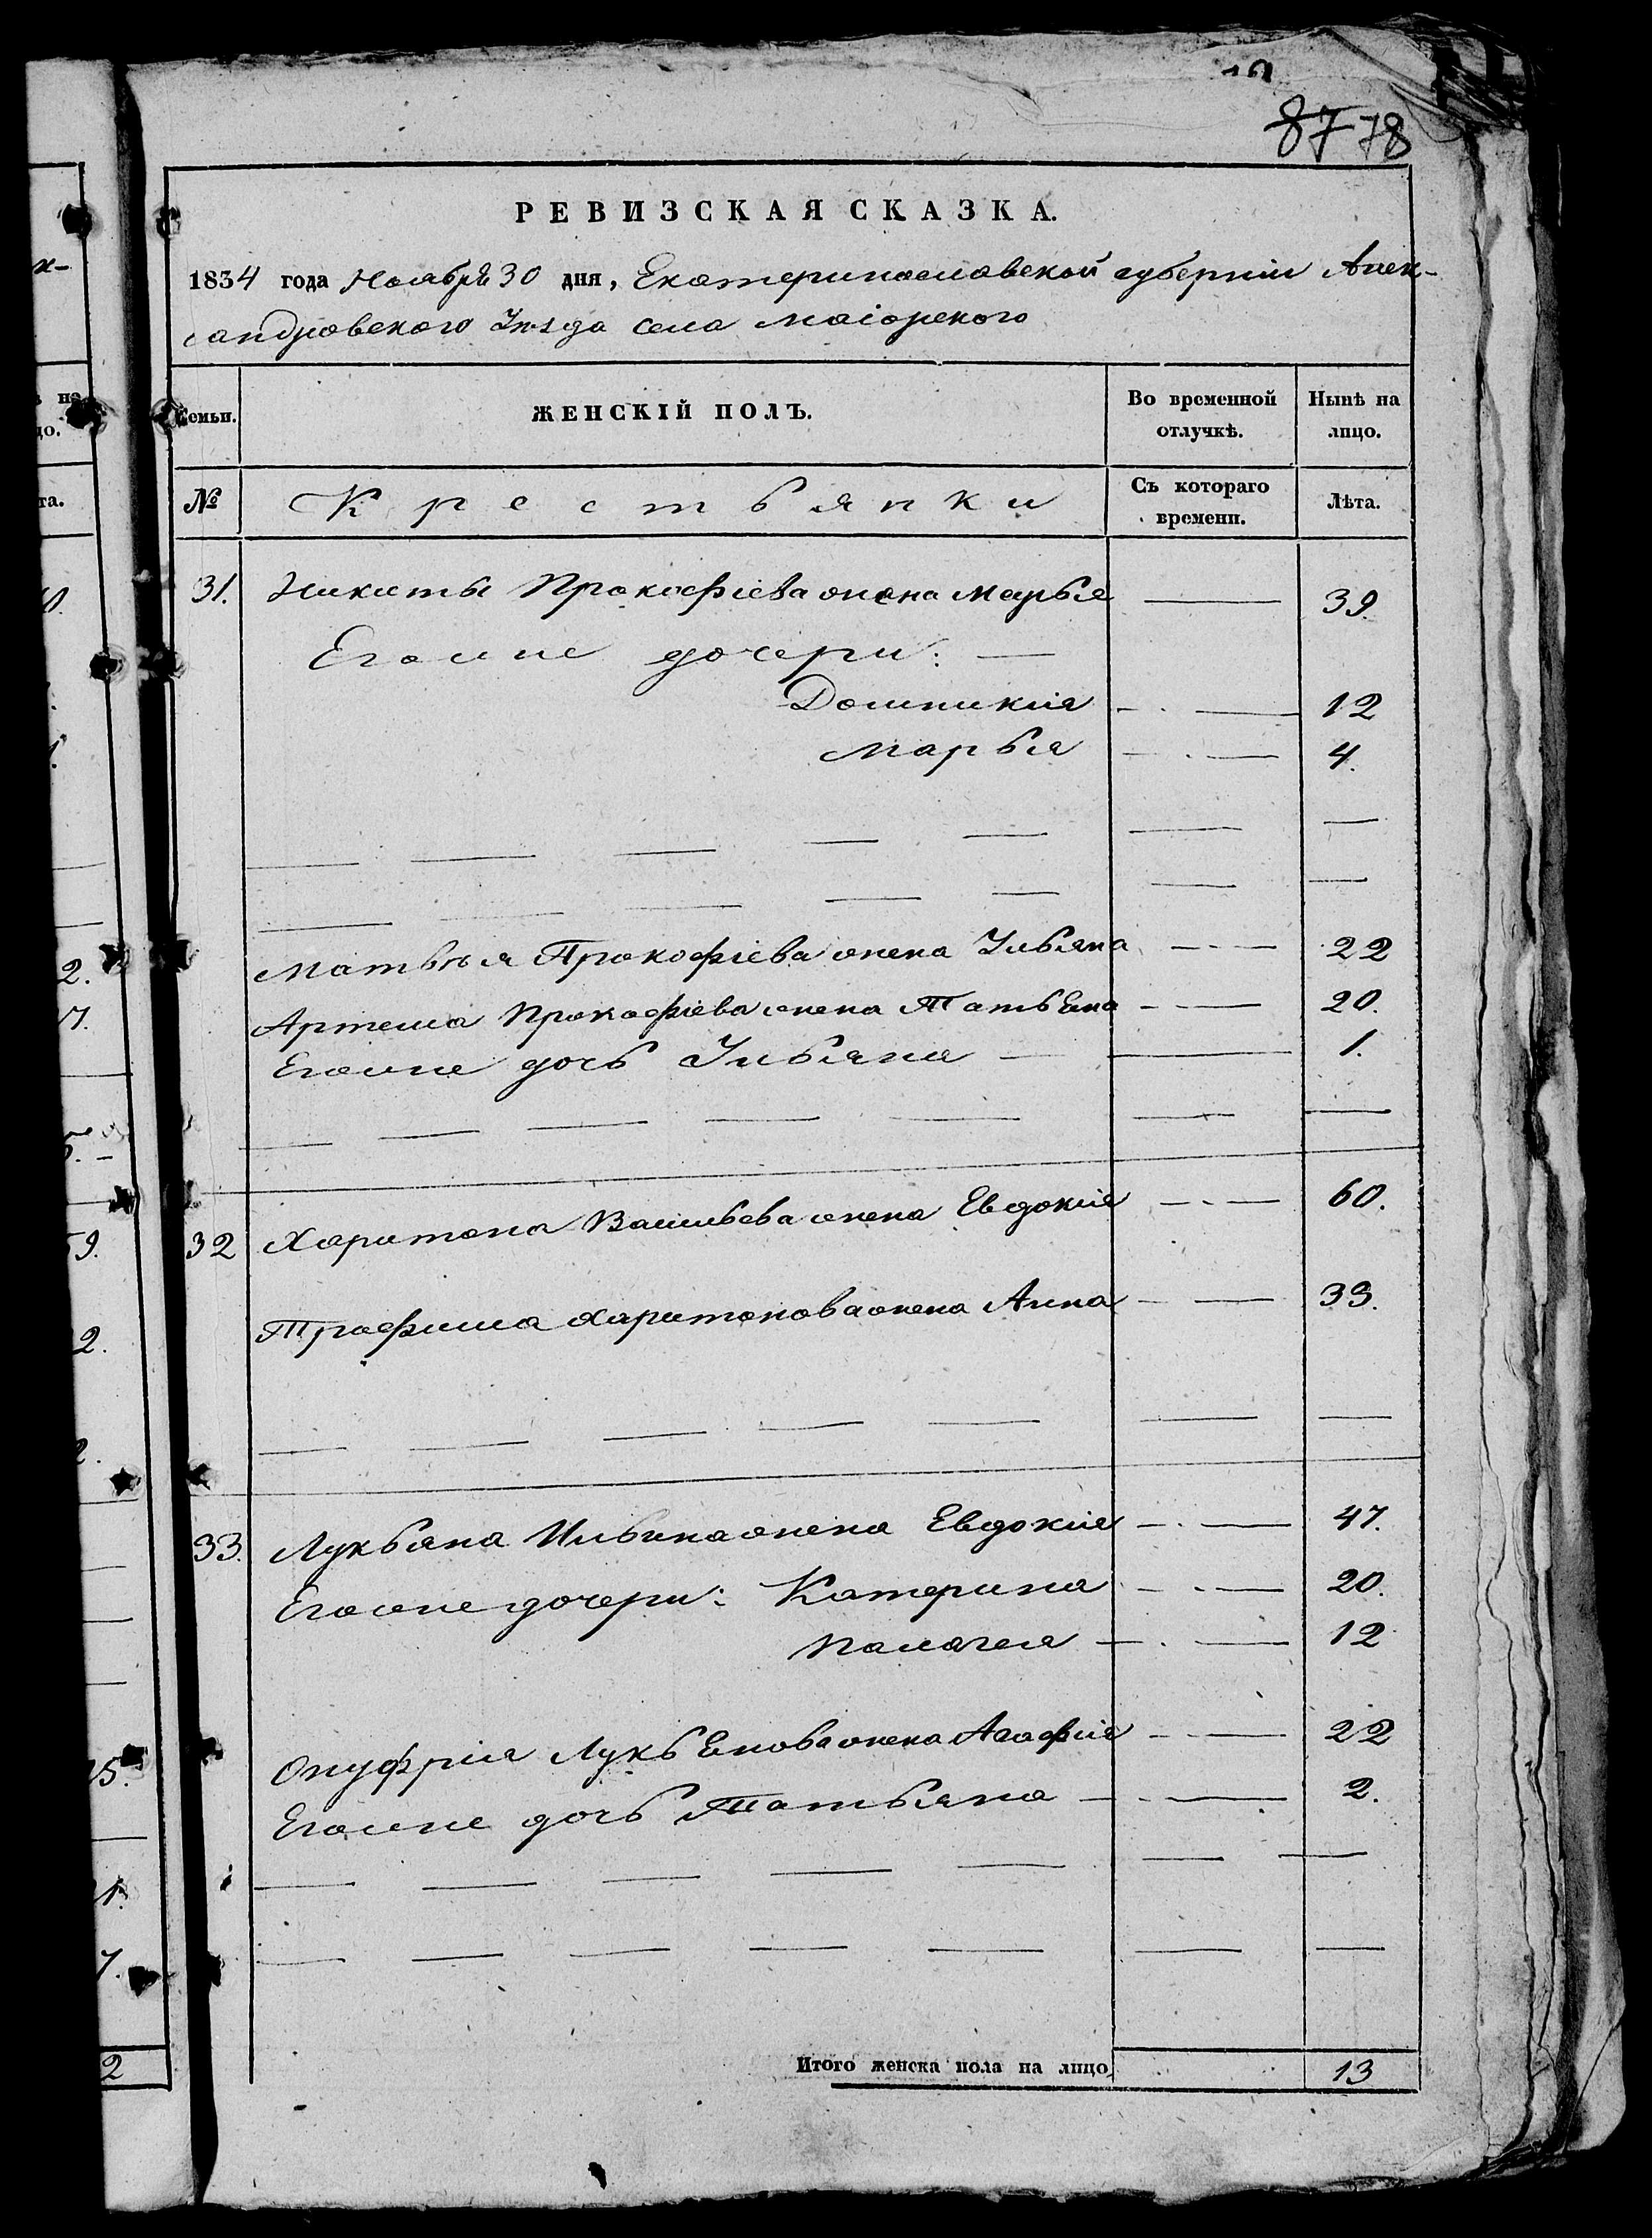 87 78
РЕВИЗСКАЯ СКАЗКА.
1834 года Ноября 30 дня, Екатеринославской губерніи Алек-
сандровскаго Уѣзда села Маіорского
Семьи. ЖЕНСКІЙ ПОЛЪ. Во временной отлучкѣ. Нынѣ на лицо.
№ Крестьянки Съ котораго времени. Лѣта.
31. Никиты Прокофіева жена Марья — 39.
Его же дочери: —
Домникія — 12
Марья — 4.
Матвѣя Прокофіева жена Ульяна — 22
Артема Прокофіева жена Татьяна — 20.
Его же дочь Ульяна — 1.
32 Харитона Васильева жена Евдокія — 60.
Трофима Харитонова жена Анна — 39.
33. Лукьяна Ильина жена Евдокія — 47.
Его же дочери: Катерина — 20.
Палагея — 12
Онуфрія Лукьянова жена Агафія — 22
Его же дочь Татьяна — 2.
Итого женска пола на лицо 13